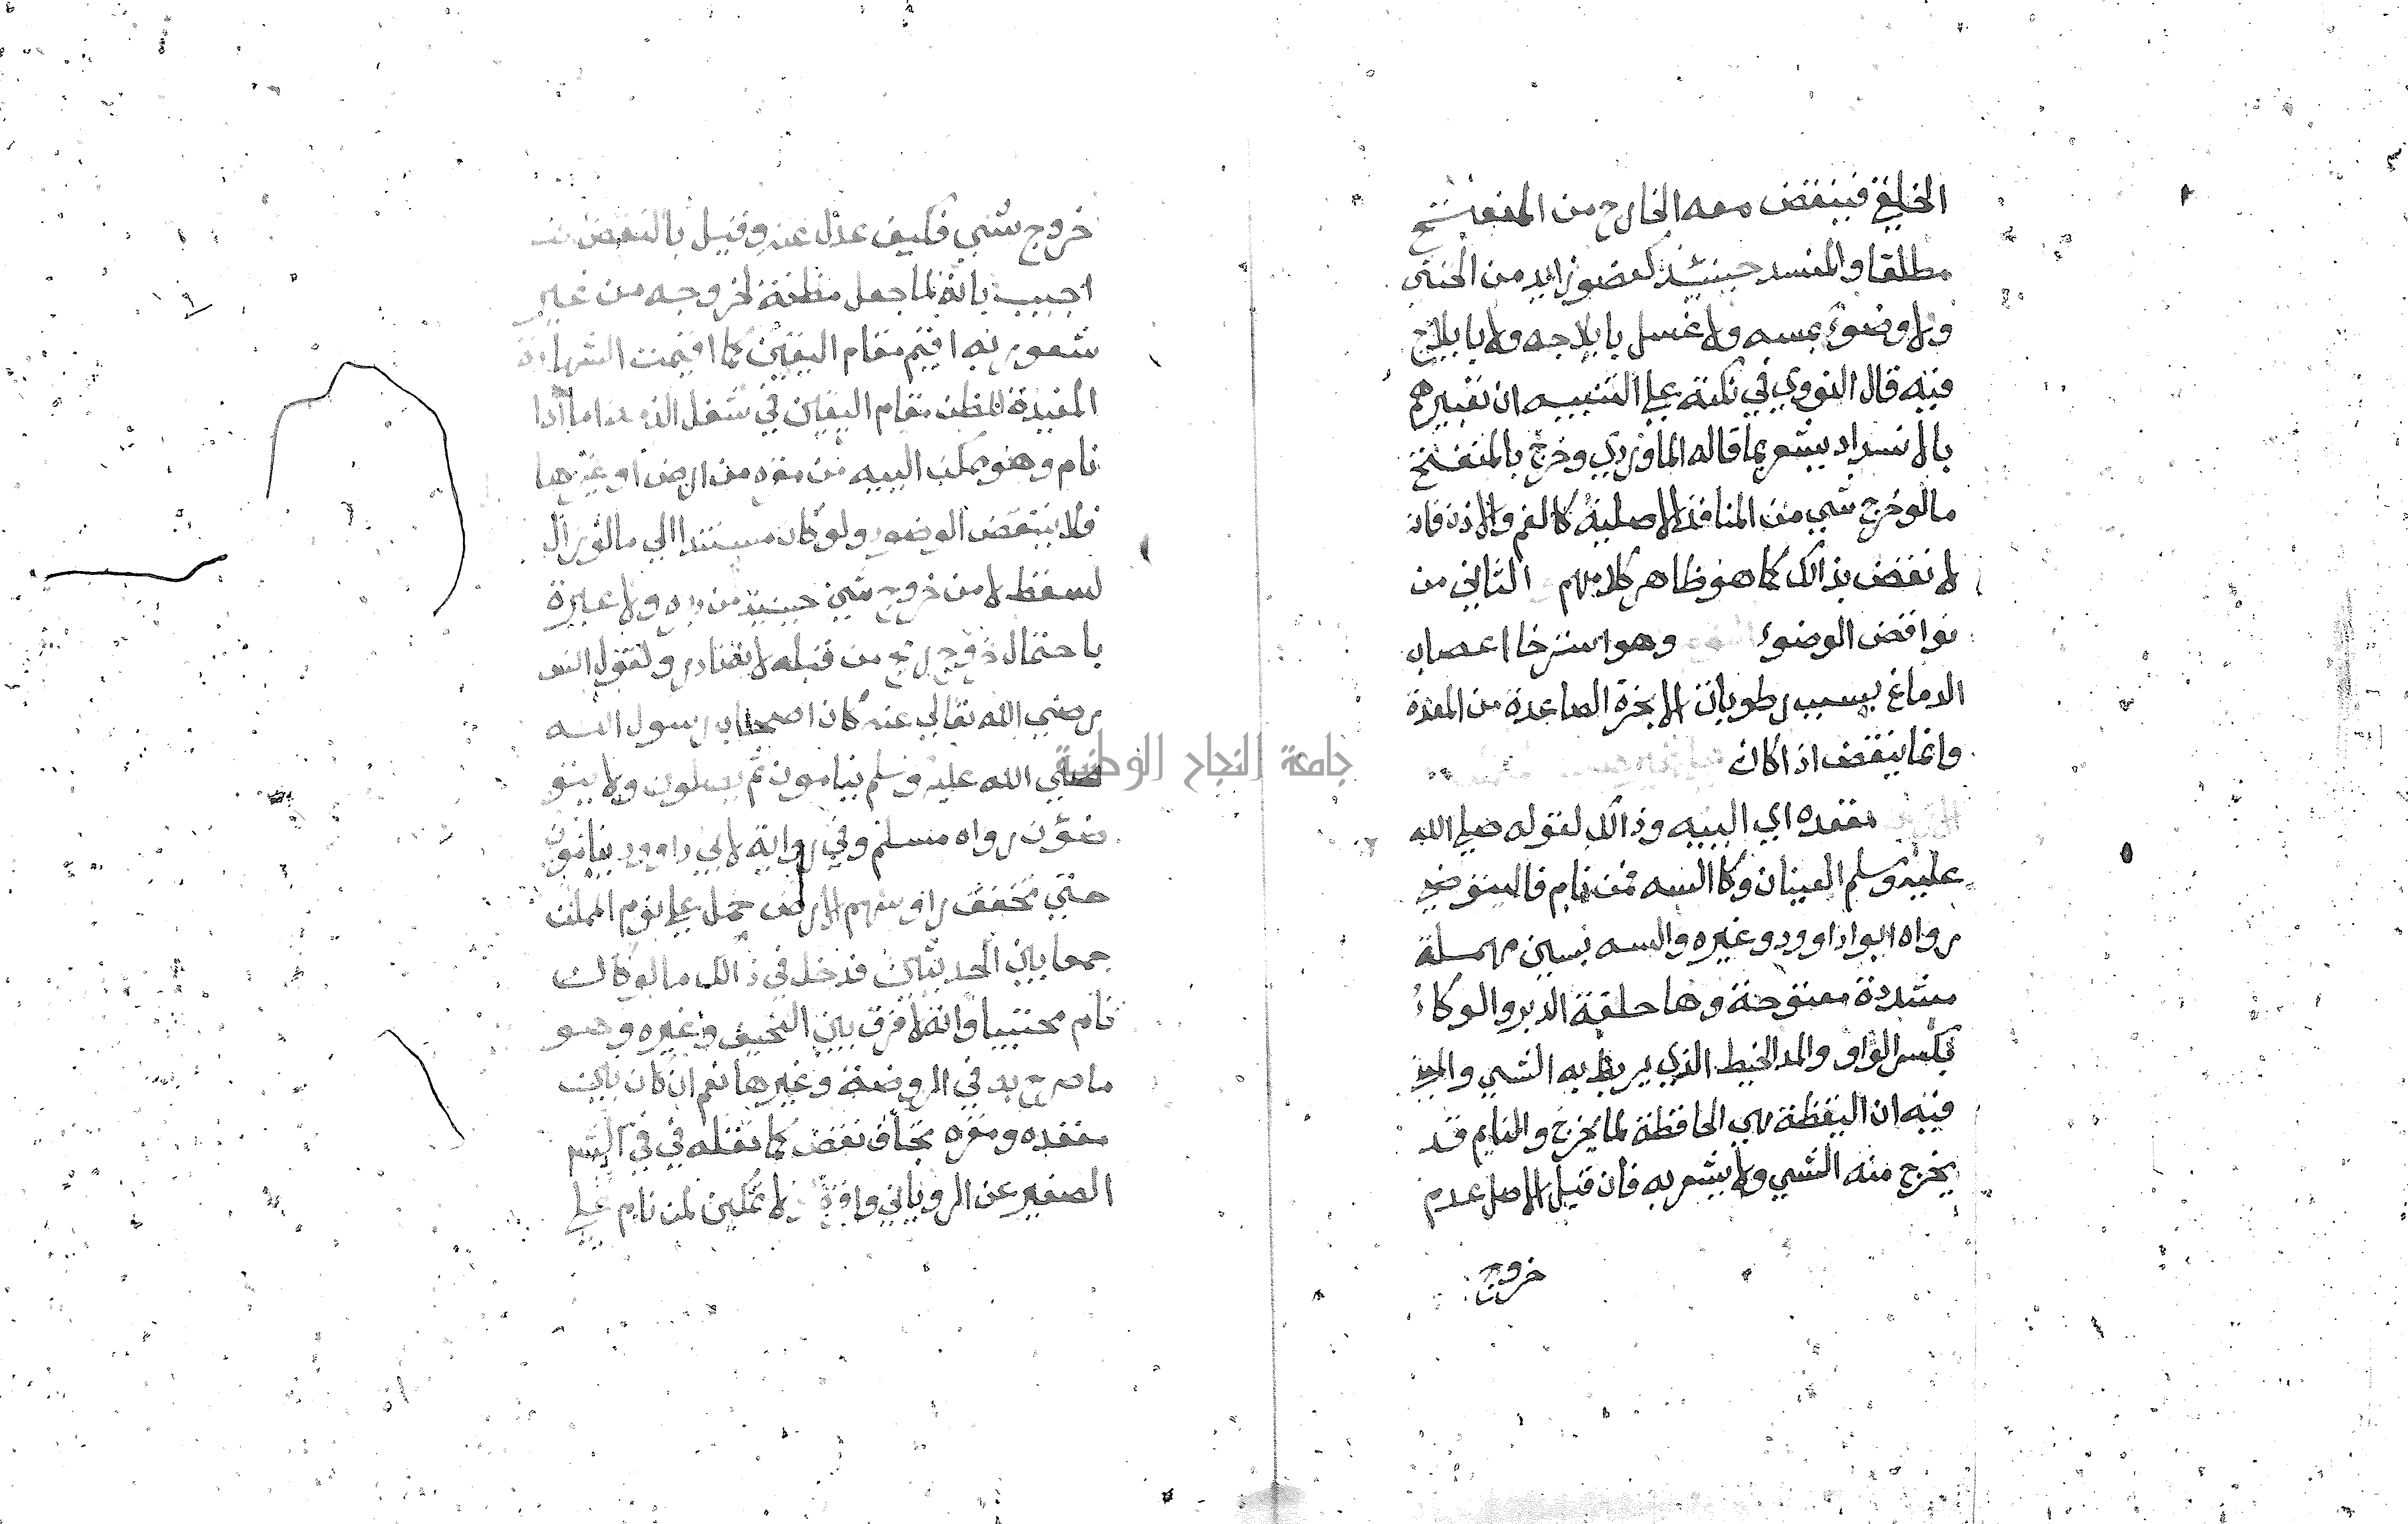 الخلقي فينقض معه الخارج من المنفتح
مطلقا والمنسد حينيذ كعضو زايد من الخنثي
ولا وضوء بمسه ولا غسل بايلاجه ولا بايلاج
فيه قال النووي في نكته علي التنبيه ان تعبيرهم
بالانسداد يشعر بما قاله الماوردي وخرج بالمنفتح
مالو خرج شي من المنافذ الاصلية كالفم والاذن فانه
لا نقض بذالك كما هو ظاهر كلامهم الثاني من
نواقض الوضوء النوم وهو استرخا اعصاب
الدماغ بسبب رطوبات الابخرة الصاعدة من المعدة
وانما ينقض اذا كان
مقعده اي الييه وذالك لقوله صلي الله
عليه وسلم العينان وكا السه فمن نام فاليتوضي
رواه ابوا داوود وغيره والسه بسين مهملة
مشددة مفتوحة وها حلقة الدبر والوكاء
بكسر الواو والمد الخيط الذي يربط به الشي والمعني
فيه ان اليقظة هي الحافظة لما يخرج والنايم قد
يخرج منه الشي ولا يشعر به فان قيل الاصل عدم
خروج
خروج شي فكيف عدل عنه وقيل بالنقض
اجيب بانه لما جعل مظنة لخروجه من غير
شعور به اقيم مقام اليقين كما اقيمت الشهادة
المفيدة للظن مقام اليقين في شغل الذمة اما اذا
نام وهو ممكن الييه من مقره من ارض او غيرها
فلا ينتقض الوضوء ولو كان مستندا الي مالو زال
لسقط لامن خروج شي حينيذ من دبره ولا عبرة
باحتمال خروج ريح من قبله لانه نادر ولقول انس
رضي الله تعالي عنه كان اصحاب رسول الله
صلي الله عليه وسلم ينامون ثم يصلون ولا يتو
ضؤن رواه مسلم وفي رواية لابي داوود ينامون
حتي تخفق رؤسهم الارض حمل علي نوم الممكن
جمعا بين الحديثين فدخل في ذالك مالو كان
نام محتبيا وانه لا فرق بين النحيف وغيره وهو
ما صرح به في الروضة وغيرها نعم ان كان بين
مقعده ومقره تجاف نقض كما نقله في في الشرح
الصغير عن الروياني واقره لا تمكين لمن نام علي
جامعة النجاح الوطنية